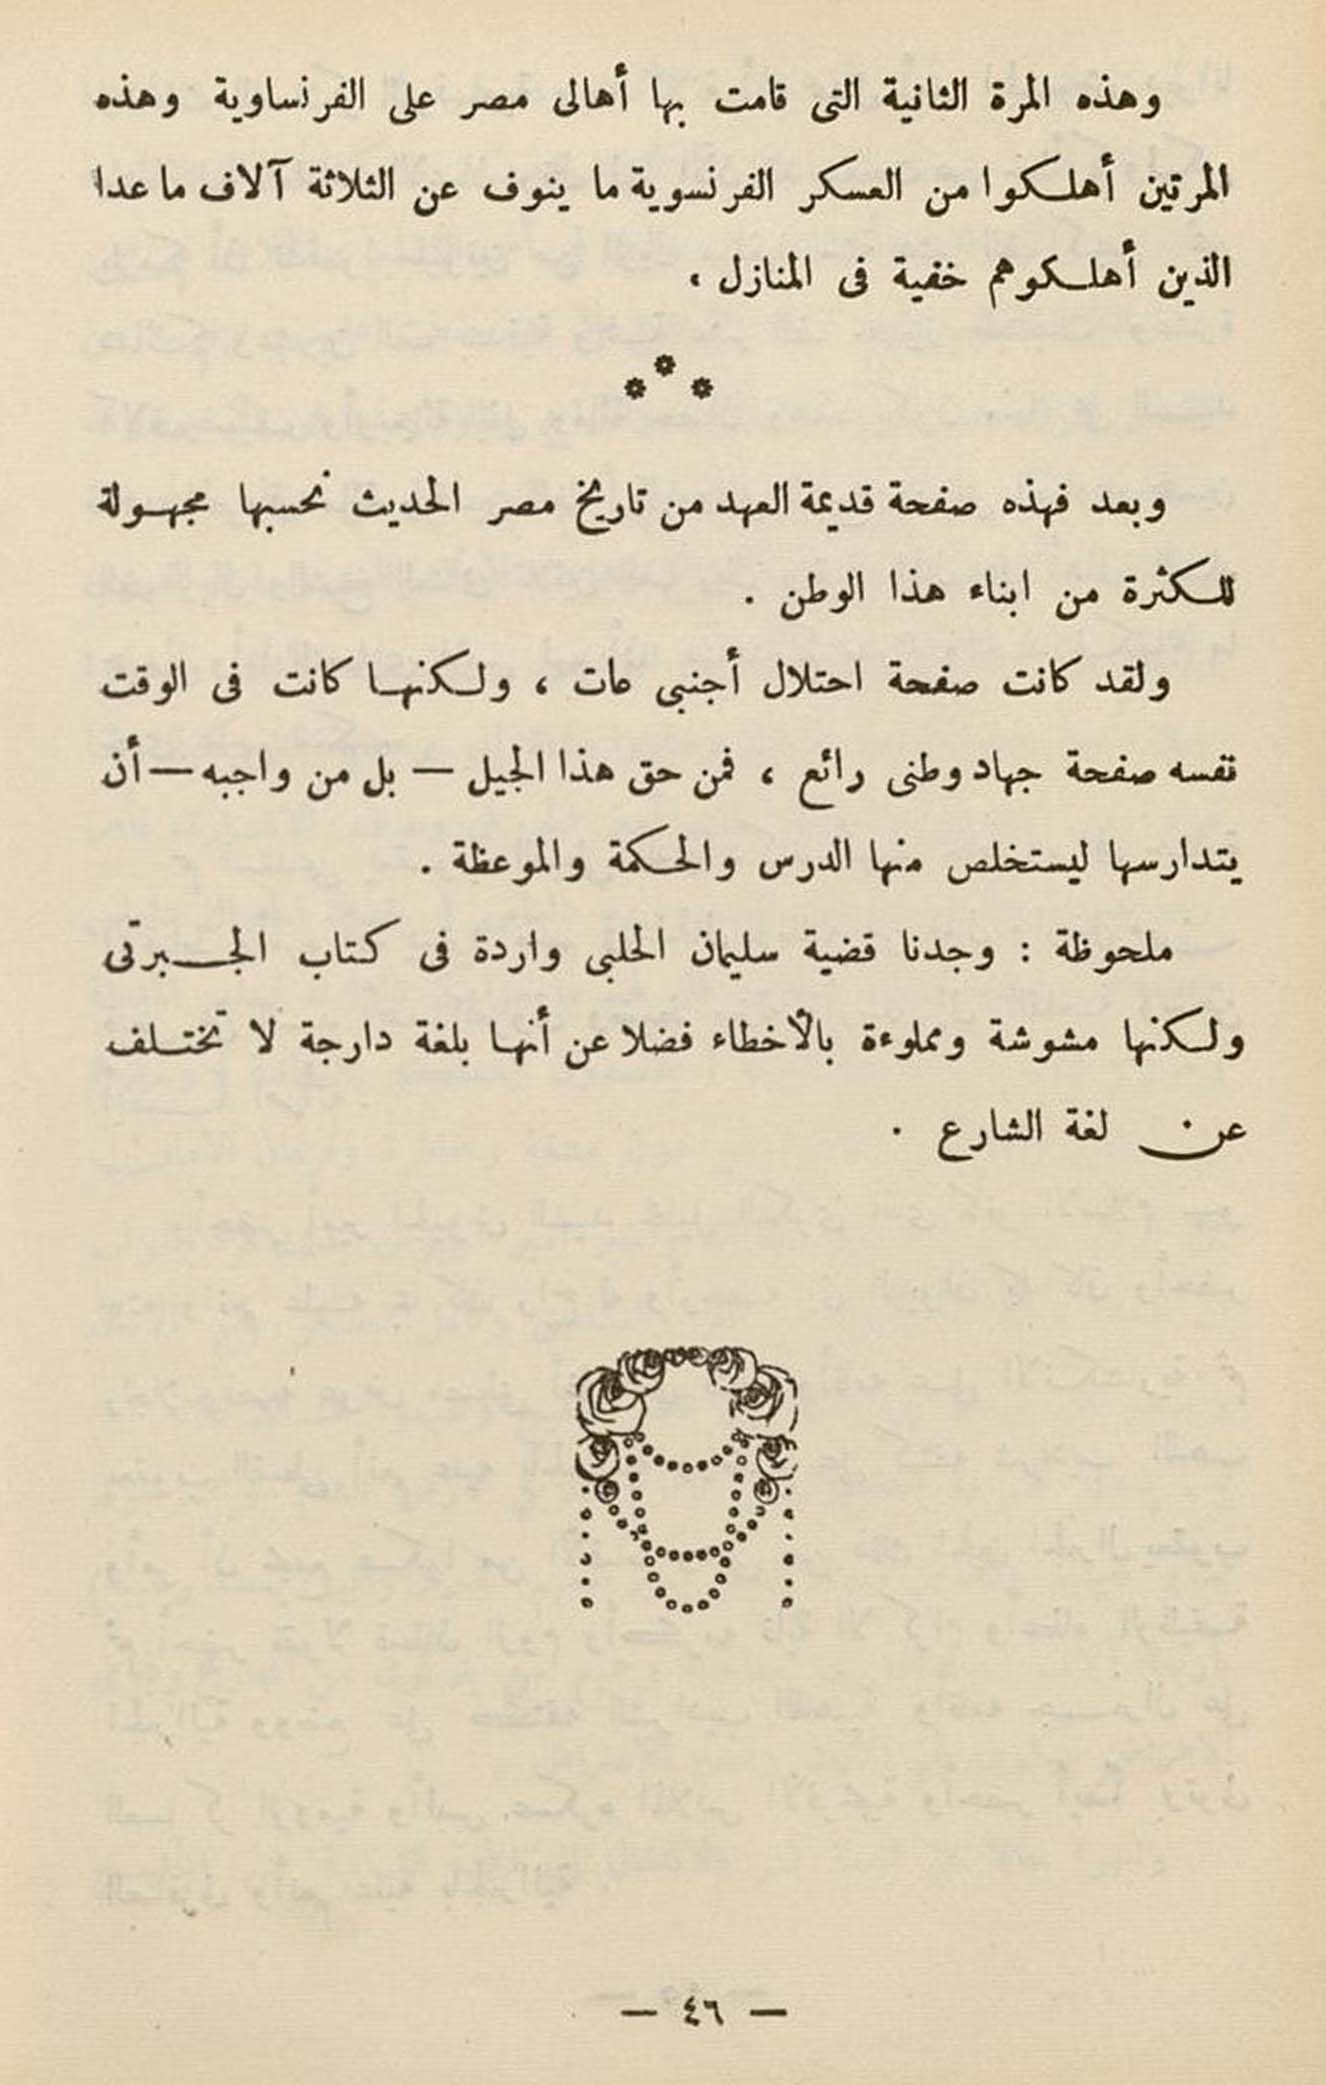 وهذه المرة الثانية التى قامت بها أهالى مصر على الفرنساوية وهذه
المرتين أهلكوا من العسكر الفرنسوية ما ينوف عن الثلاثة آلاف ما عدا
الذين أهلكوهم خفية فى المنازل ،
* * *
وبعد فهذه صفحة قديمة العهد من تاريخ مصر الحديث نحسبها مجهولة
للكثرة من ابناء هذا الوطن .
ولقد كانت صفحة احتلال أجنبى عات ، ولكنها كانت فى الوقت
نفسه صفحة جهاد وطنى رائع ، فمن حق هذا الجيل — بل من واجبه — أن
يتدارسها ليستخلص منها الدرس والحكمة والموعظة .
ملحوظة : وجدنا قضية سليمان الحلبى واردة فى كتاب الجبرتى
ولكنها مشوشة ومملوءة بالأخطاء فضلا عن أنها بلغة دارجة لا تختلف
عن لغة الشارع .
— ٤٦ —